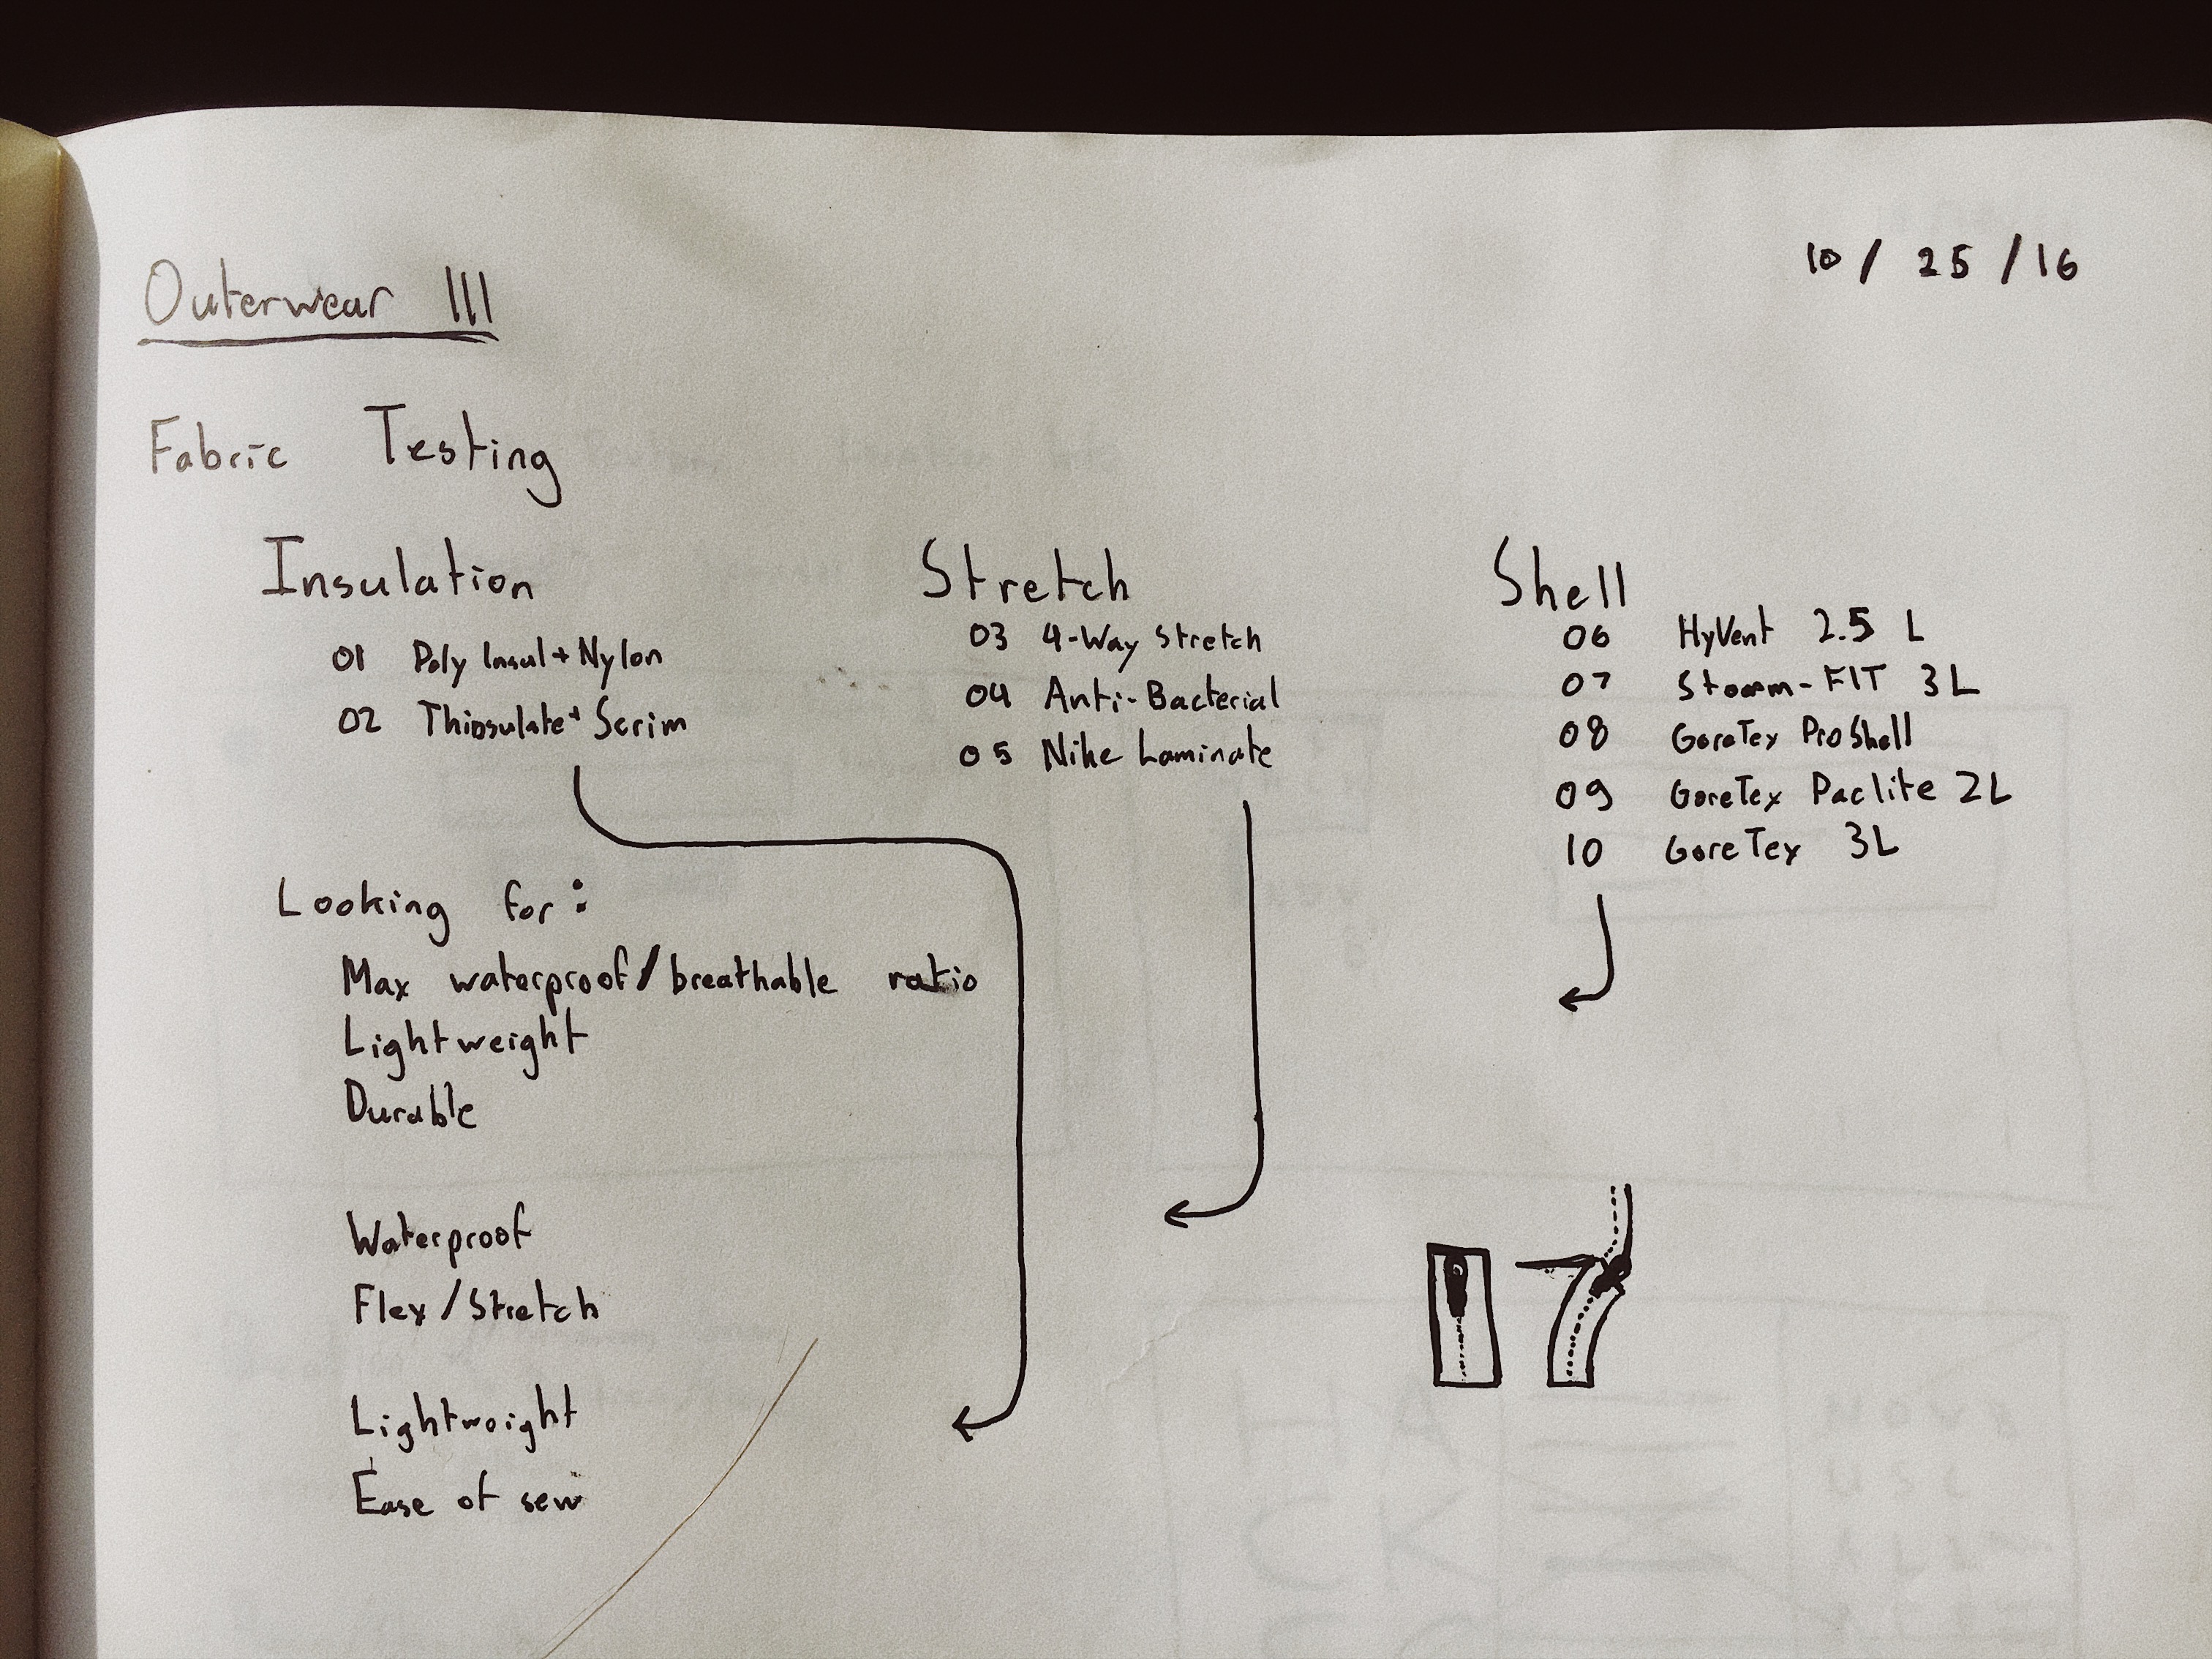 10 / 25 / 16
Outerwear III
Fabric Testing
Insulation
01 Poly Insul + Nylon
02 Thinsulate + Scrim
Stretch
03 4-Way Stretch
04 Anti-Bacterial
05 Nike Laminate
Shell
06 HyVent 2.5 L
07 Storm-FIT 3L
08 GoreTex ProShell
09 GoreTex Paclite 2L
10 GoreTex 3L
Looking for:
Max waterproof/breathable ratio
Lightweight
Durable
Waterproof
Flex/Stretch
Lightweight
Ease of sew